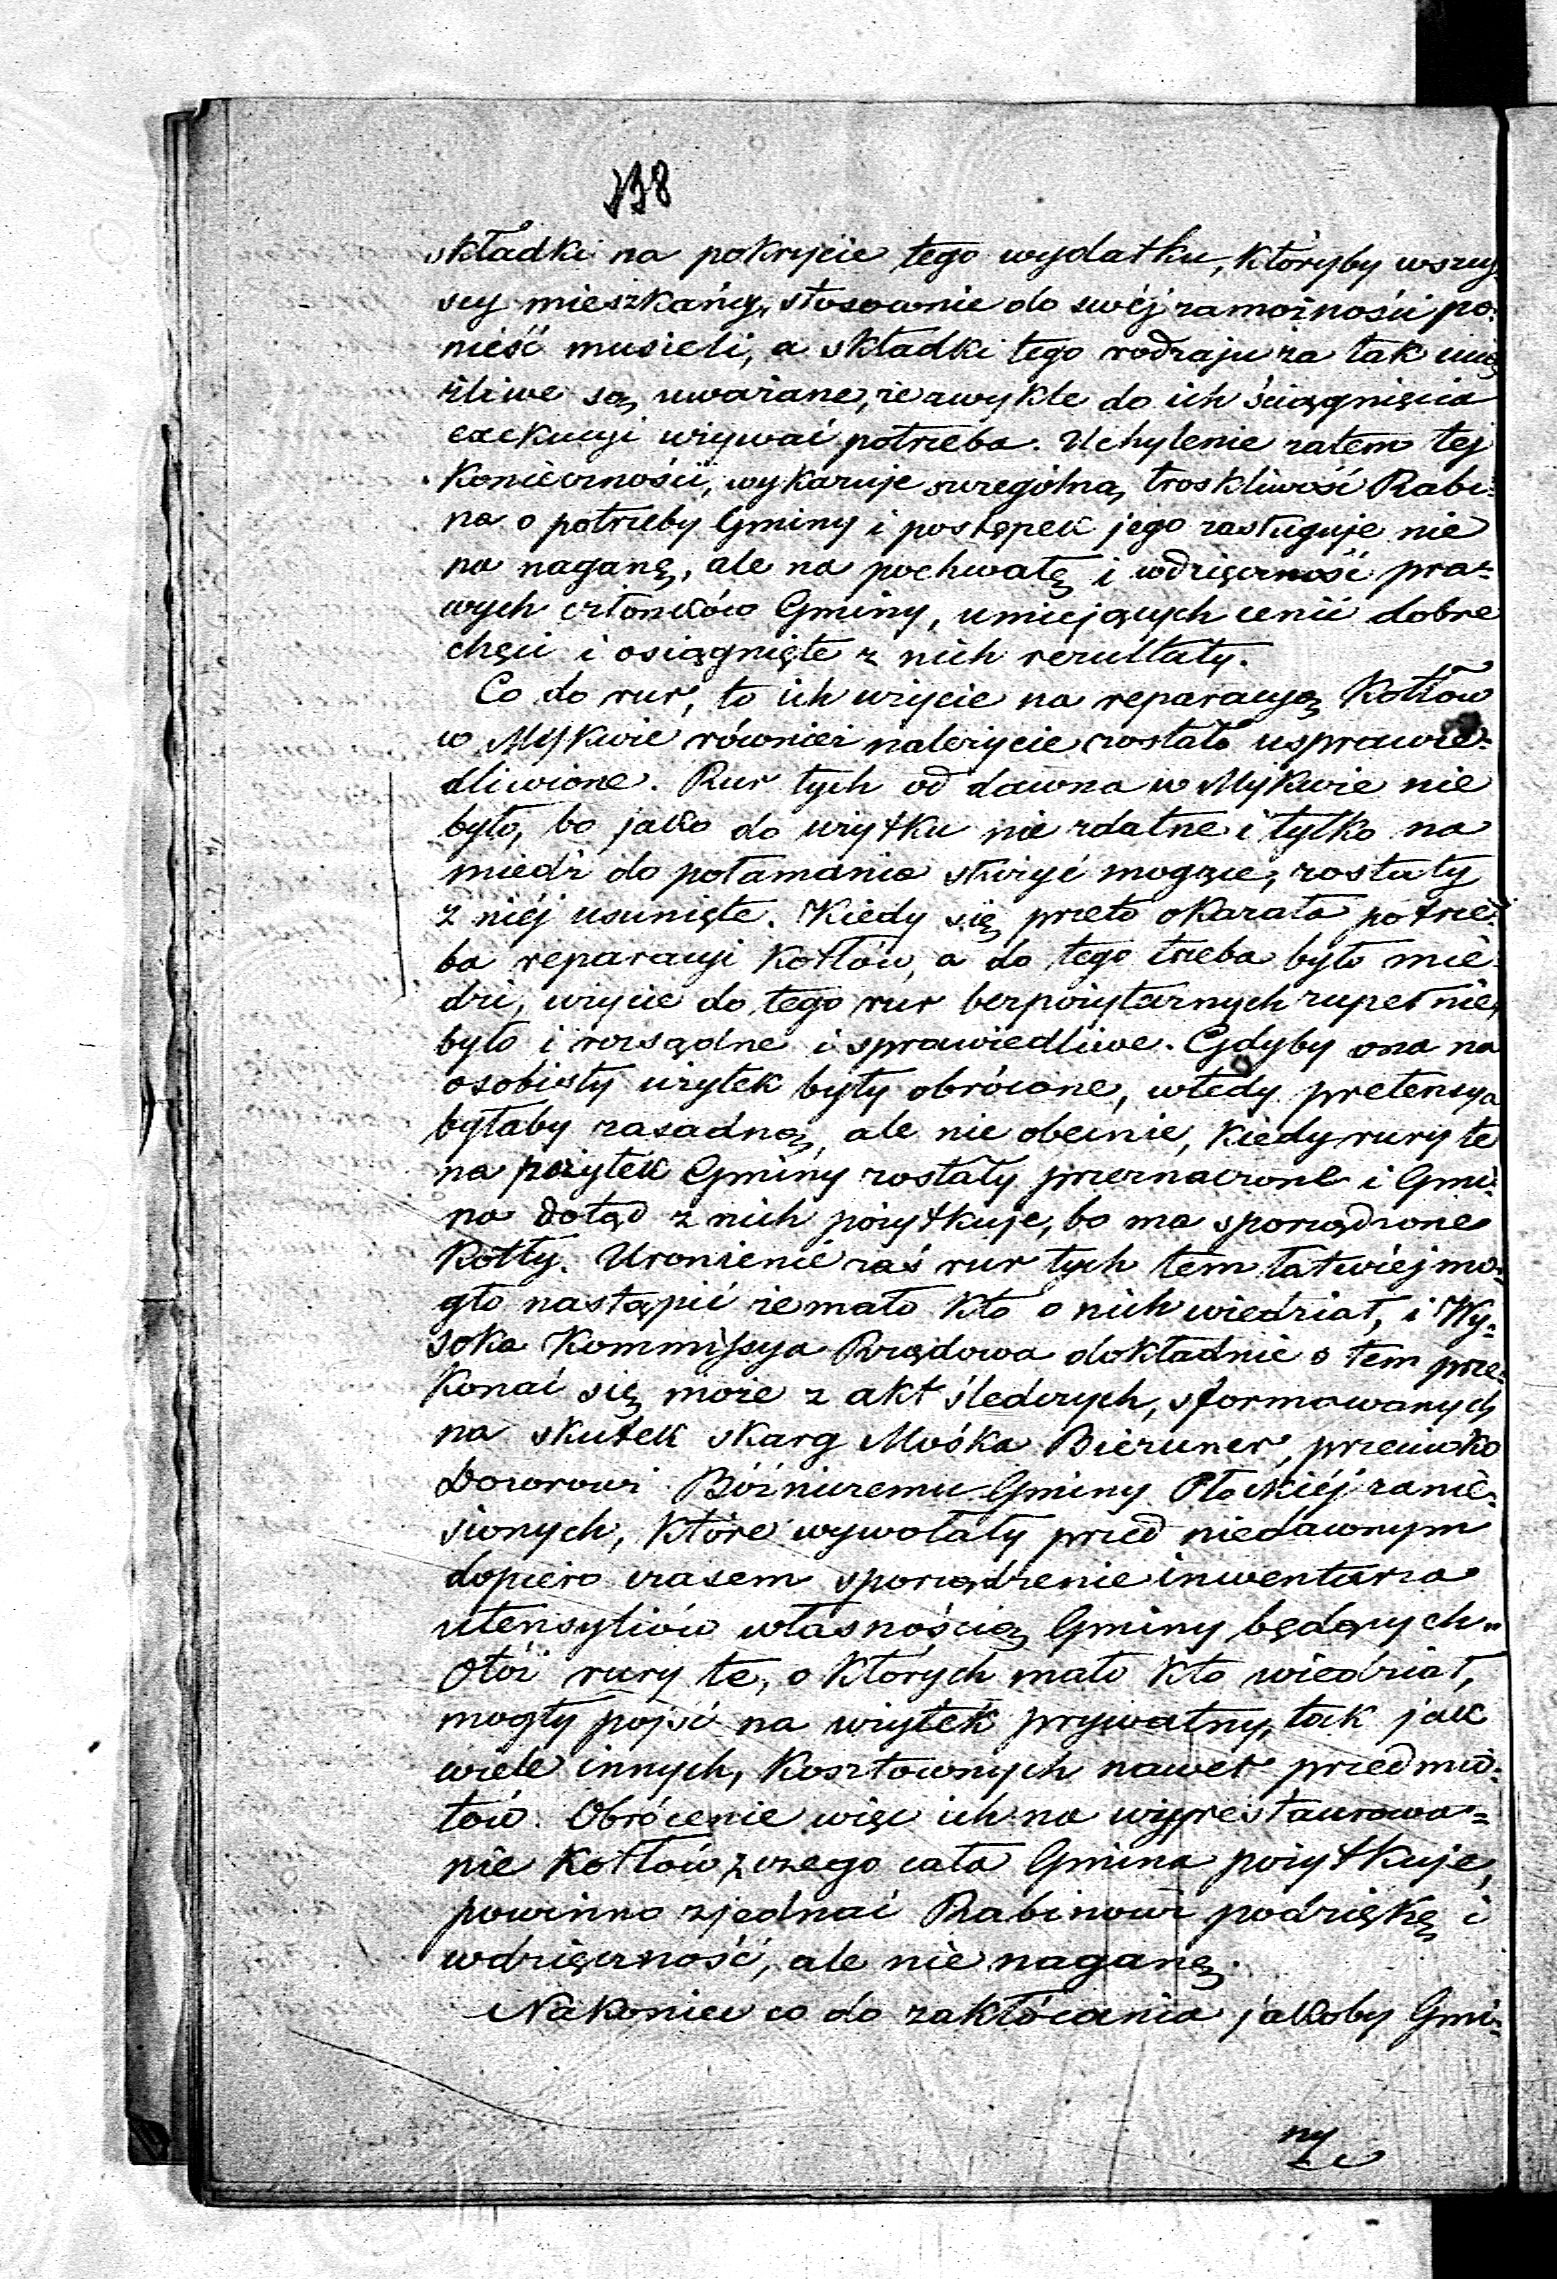 138
składki na pokrycie tego wydatku, któryby wszy
scy mieszkańcy, stosownie do swéj zamożności po-
nieść musieli, a składki tego rodzaju za tak ucią
żliwe są uważane, że zwykle do ich ściągnięcia
exekucyi używać potrzeba. Uchylenie zatem tej
konieczności, wykazuje szczególną troskliwość Rabi-
na o potrzeby Gminy i postępek jego zasługuje nie
na naganę, ale na pochwałę i wdzięczność pra-
wych członków Gminy, umiejących cenić dobre
chęci i osiągnięte z nich rezultaty.
Co do rur, to ich użycie na reparacyą kotłów
w Mykwie również należycie zostało usprawie-
dliwione. Rur tych od dawna w Mykwie nie
było, bo jako do użytku nie zdatne i tylko na
miedź do połamania służyć mogące, zostały
z niéj usunięte. Kiedy się przeto okazała potrze-
ba reparacyi kotłów, a do tego trzeba było mie-
dzi, użycie do tego rur bezpożytecznych zupełnie
było i rozsądne i sprawiedliwe. Gdyby one na
osobisty użytek były obrócone, wtedy pretensya
byłaby zasadną, ale nie obecnie, kiedy rury te
na pożytek Gminy zostały przeznaczone i Gmi-
na dotąd z nich pożytkuje, bo ma sporządzone
kotły. Uronienie zaś rur tych tem łatwiéj mo-
gło nastąpić że mało kto o nich wiedział, i Wy-
soka Kommissya Rządowa dokładnie o tem prze-
konać się może z akt śledczych, sformowanych
na skutek skarg Mośka Bierzuner, przeciwko
Dozorowi Bóżniczemu Gminy Płockiéj zanie-
sionych, które wywołały przed niedawnym
dopiero czasem sporządzenie inwentarza
utensyliów własnością Gminy będących.
Otóż rury te, o których mało kto wiedział,
mogły pójść na użytek prywatny, tak jak
wiele innych, kosztownych nawet przedmio-
tów. Obrócenie więc ich na wyrestaurowa-
nie kotłów, z czego cała Gmina pożytkuje,
powinno zjednać Rabinowi podziękę i
wdzięczność, ale nie naganę.
Nakoniec co do zakłócania jakoby Gmi-
ny